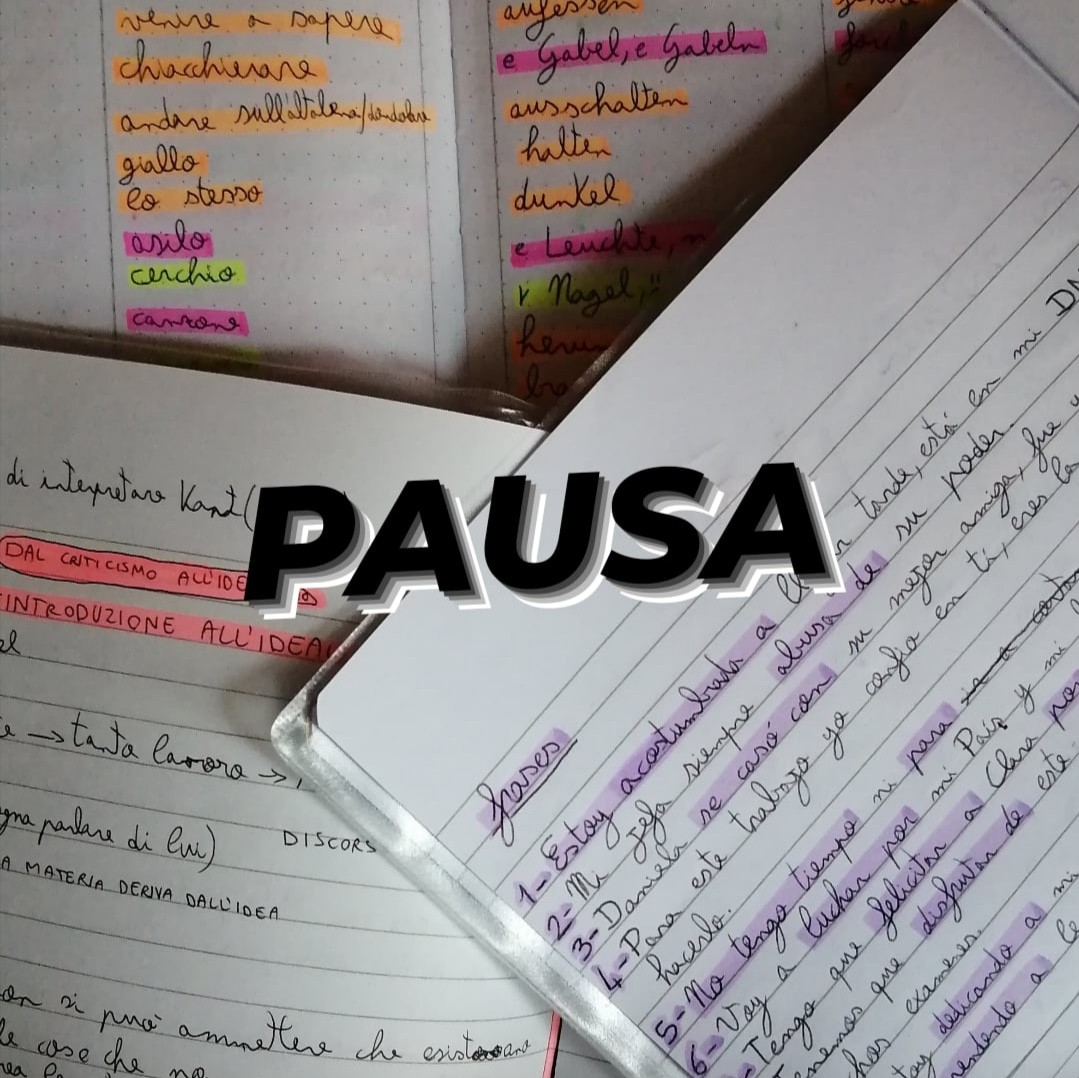 venire a sapere
chiacchierare
andare sull'altalena/
giallo
lo stesso
asilo
cerchio
canzone
aufessen
e Gabel, e Gabeln
ausschalten
halten
dunkel
e Leuchte, n
r Nagel, "
di interpretare Kant (
DAL CRITICISMO ALL'IDE
INTRODUZIONE ALL'IDEA
→ tanto lavoro →
parlare di lui)
DISCORS
A MATERIA DERIVA DALL'IDEA
si può ammettere che
le cose che
PAUSA
frases
1- Estoy acostumbrada a tarde, está en mi DN
2- Mi jefa siempre abusa de su poder.
3- Daniela se casó con su mejor amiga, fue
4- Para este trabajo yo confío en ti, eres la
hacerlo.
5- No tengo tiempo ni para
6- Voy a luchar por mi País y mi
Tengo que felicitar a Clara por
que disfrutar de este
exámenes.
dedicando a mi